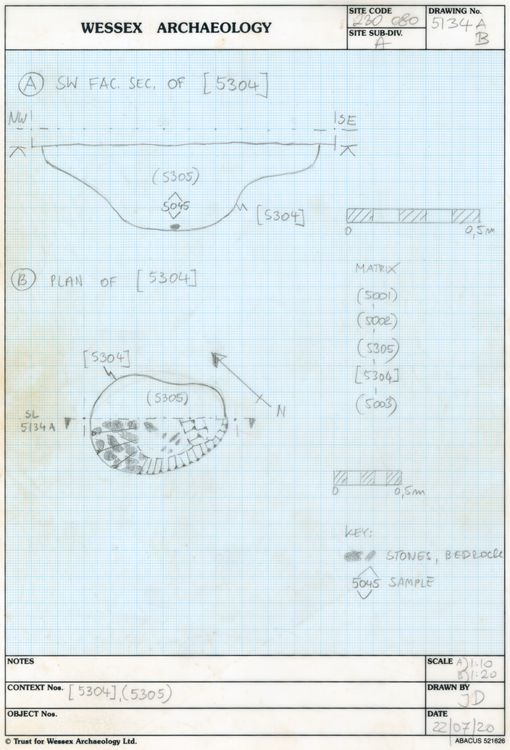 WESSEX ARCHAEOLOGY
SITE CODE
230 080
SITE SUB-DIV.
A
DRAWING No.
5134 A
B
A SW FAC. SEC. OF [5304]
NW
SE
(5305)
5045
[5304]
0 0,5m
B PLAN OF [5304]
MATRIX
(5001)
(5002)
(5305)
[5304]
(5003)
[5304]
(5305)
N
SL
5134A
0 0,5m
KEY:
STONES, BEDROCK
5045 SAMPLE
NOTES
SCALE A) 1:10
B) 1:20
CONTEXT Nos. [5304],(5305)
DRAWN BY
JD
OBJECT Nos.
DATE
22/07/20
© Trust for Wessex Archaeology Ltd.
ABACUS 521626